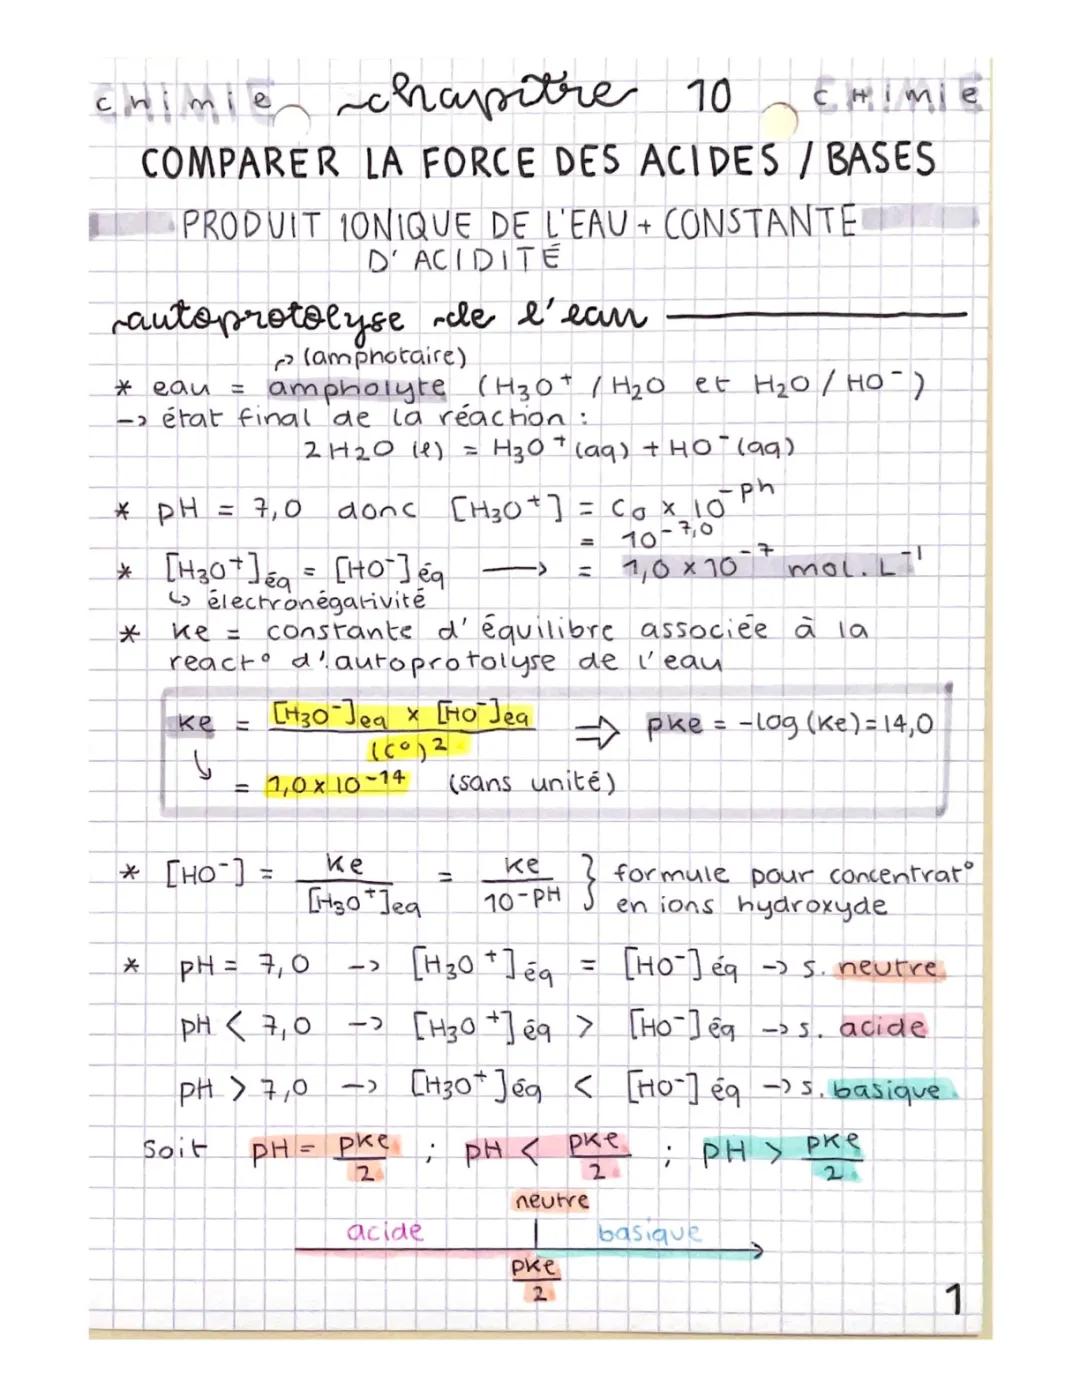 CHIMIE chapitre 10 CHIMIE
COMPARER LA FORCE DES ACIDES / BASES
PRODUIT IONIQUE DE L'EAU + CONSTANTE
D'ACIDITÉ
autoprotolyse de l'eau
↱ (amphotaire)
* eau = ampholyte (H3O+ / H2O et H2O / HO-)
-> état final de la réaction :
2 H2O (l) = H3O+ (aq) + HO- (aq)
* pH = 7,0 donc [H3O+] = C0 x 10^-ph
= 10^-7,0
* [H3O+]éq = [HO-]éq → = 1,0 x 10^-7 mol.L^-1
↳ électronégativité
* Ke = constante d'équilibre associée à la
react° d'autoprotolyse de l'eau
Ke = [H3O-]eq x [HO-]eq / (C°)^2 ⇒ pKe = -log (Ke) = 14,0
↳ = 1,0 x 10^-14 (sans unité)
* [HO-] = Ke / [H3O+]eq = Ke / 10^-PH } formule pour concentrat°
en ions hydroxyde
* pH = 7,0 -> [H3O+]éq = [HO-]éq -> s. neutre
pH < 7,0 -> [H3O+]éq > [HO-]éq -> s. acide
pH > 7,0 -> [H3O+]éq < [HO-]éq -> s. basique
Soit pH = pKe/2 ; pH < pKe/2 ; pH > pKe/2
neutre
acide basique
pKe/2
1